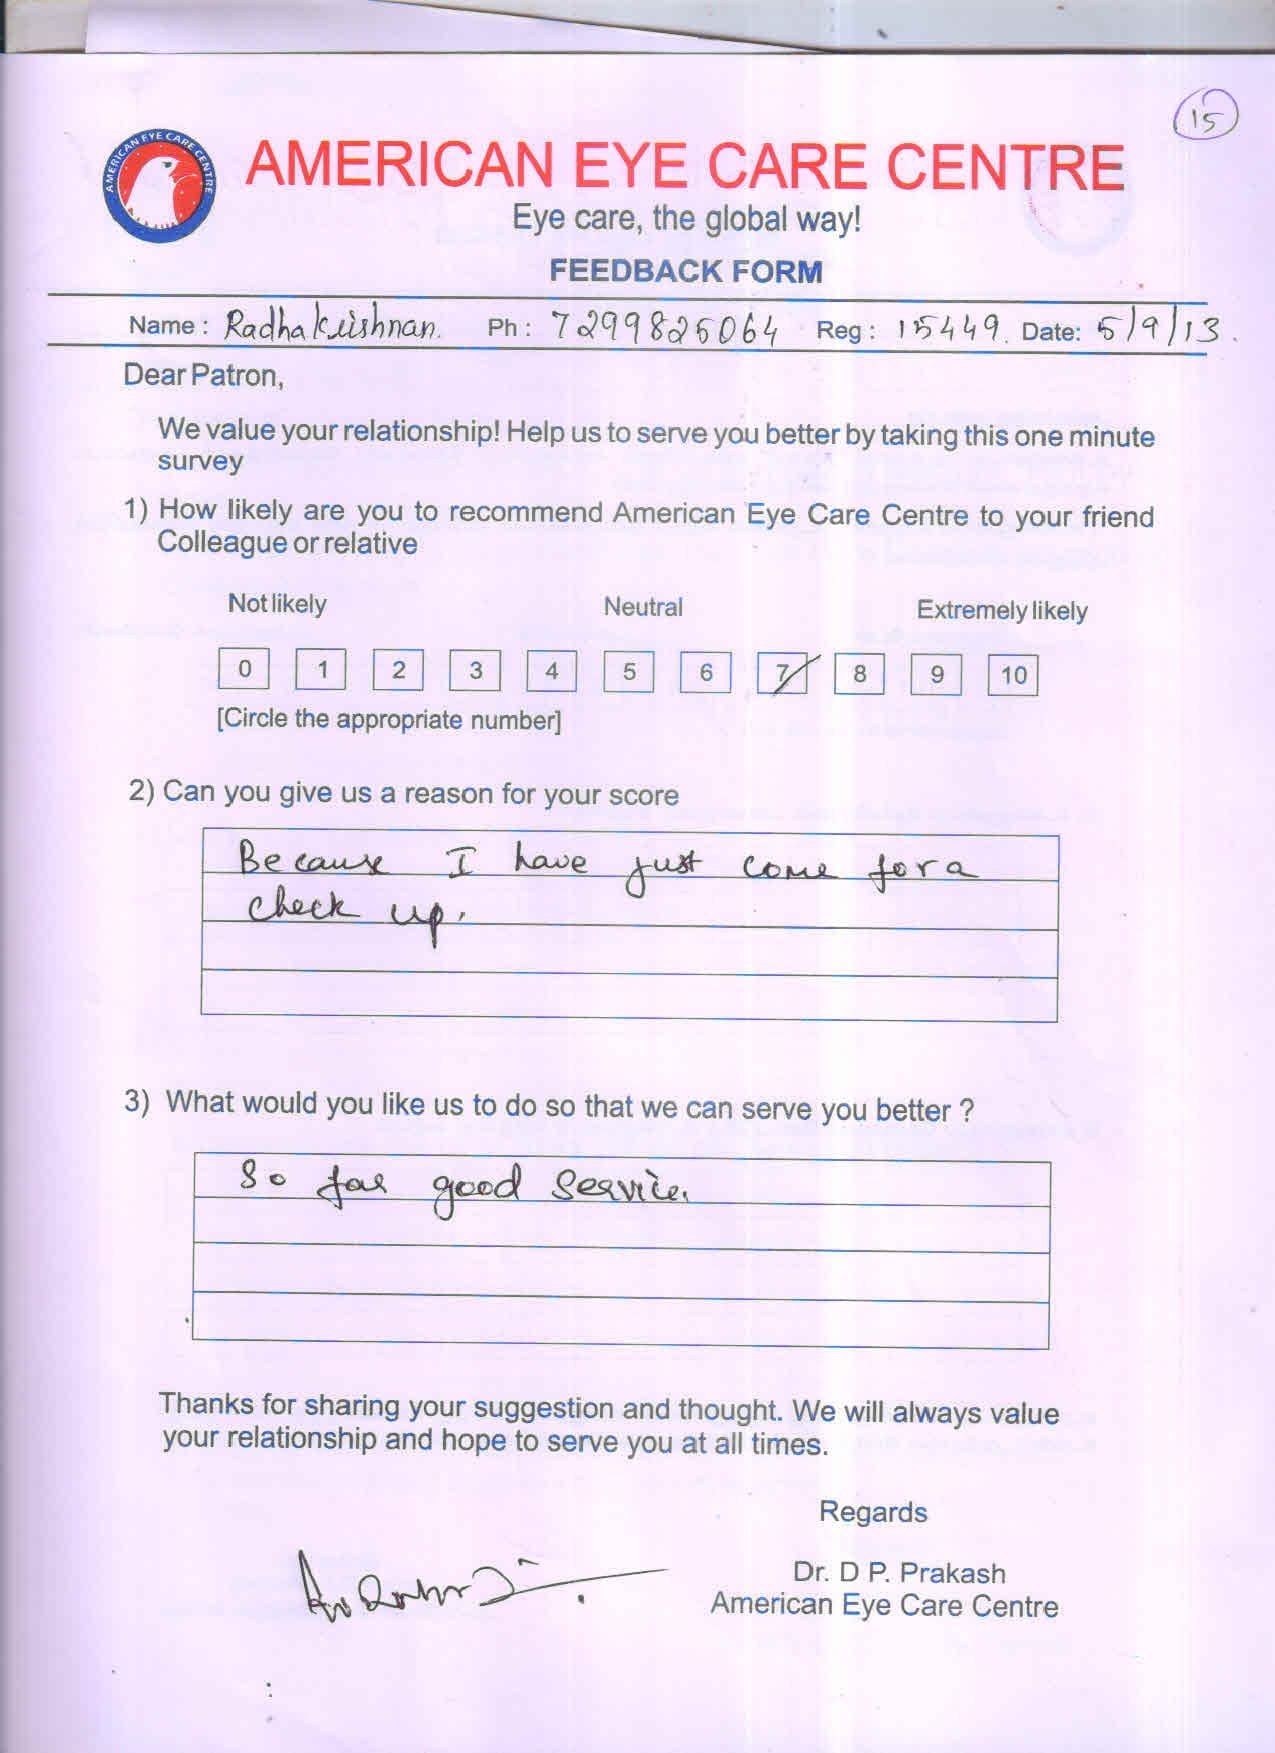 15
AMERICAN EYE CARE CENTRE
AMERICAN EYE CARE CENTRE
Eye care, the global way!
FEEDBACK FORM
Name : Radhakrishnan. Ph : 7299825064 Reg : 15449. Date: 5/9/13.
Dear Patron,
We value your relationship! Help us to serve you better by taking this one minute
survey
1) How likely are you to recommend American Eye Care Centre to your friend
Colleague or relative
Not likely Neutral Extremely likely
0 1 2 3 4 5 6 7 8 9 10
[Circle the appropriate number]
2) Can you give us a reason for your score
Because I have just come for a
check up.
3) What would you like us to do so that we can serve you better ?
So far good service.
Thanks for sharing your suggestion and thought. We will always value
your relationship and hope to serve you at all times.
Regards
Dr. D P. Prakash
American Eye Care Centre